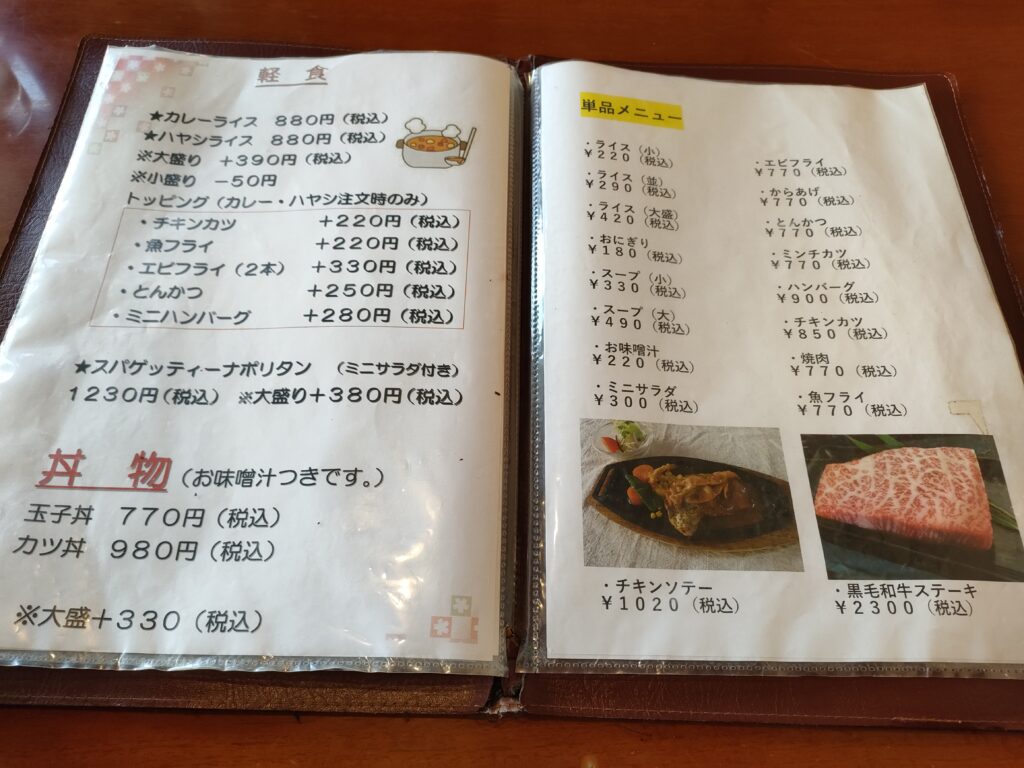 軽食
★カレーライス 880円（税込）
★ハヤシライス 880円（税込）
※大盛り +390円（税込）
※小盛り −50円
トッピング（カレー・ハヤシ注文時のみ）
・チキンカツ +220円（税込）
・魚フライ +220円（税込）
・エビフライ（2本） +330円（税込）
・とんかつ +250円（税込）
・ミニハンバーグ +280円（税込）
★スパゲッティーナポリタン （ミニサラダ付き）
1230円（税込） ※大盛り+380円（税込）
丼物（お味噌汁つきです。）
玉子丼 770円（税込）
カツ丼 980円（税込）
※大盛+330（税込）
単品メニュー
・ライス（小）
￥220（税込）
・ライス（並）
￥290（税込）
・ライス（大盛）
￥420（税込）
・おにぎり
￥180（税込）
・スープ（小）
￥330（税込）
・スープ（大）
￥490（税込）
・お味噌汁
￥220（税込）
・ミニサラダ
￥300（税込）
・エビフライ
￥770（税込）
・からあげ
￥770（税込）
・とんかつ
￥770（税込）
・ミンチカツ
￥770（税込）
・ハンバーグ
￥900（税込）
・チキンカツ
￥850（税込）
・焼肉
￥770（税込）
・魚フライ
￥770（税込）
・チキンソテー
￥1020（税込）
・黒毛和牛ステーキ
￥2300（税込）